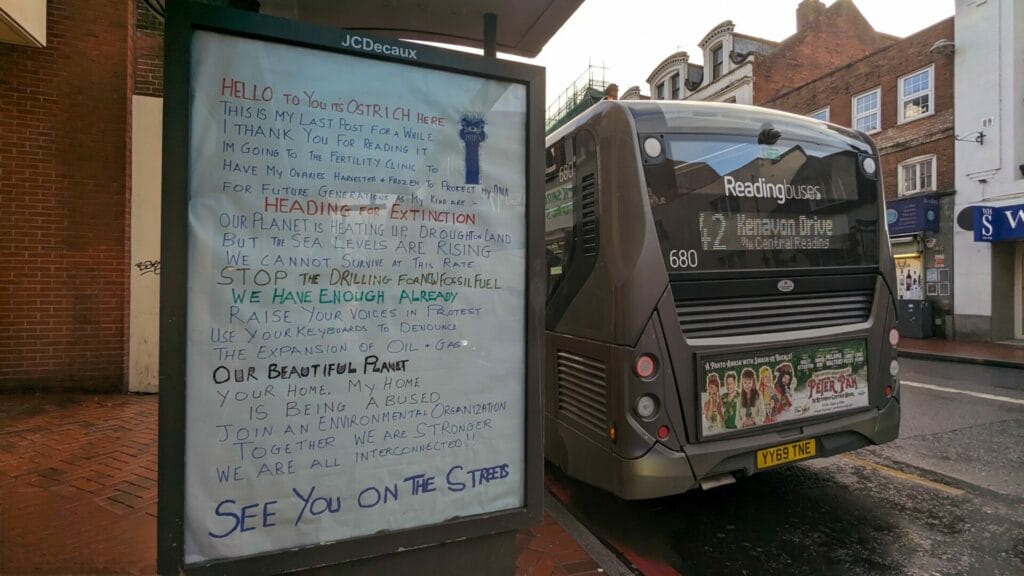 JCDecaux
HELLO TO YOU ITS OSTRICH HERE
THIS IS MY LAST POST FOR A WHILE
I THANK YOU FOR READING IT
IM GOING TO THE FERTILITY CLINIC TO
HAVE MY OVARIES HARVESTED + FROZEN TO PROTECT MY DNA
FOR FUTURE GENERATIONS AS MY KIND ARE -
HEADING FOR EXTINCTION
OUR PLANET IS HEATING UP, DROUGHT ON LAND
BUT THE SEA LEVELS ARE RISING
WE CANNOT SURVIVE AT THIS RATE
STOP THE DRILLING FOR NEW FOSSIL FUEL
WE HAVE ENOUGH ALREADY
RAISE YOUR VOICES IN PROTEST
USE YOUR KEYBOARDS TO DENOUNCE
THE EXPANSION OF OIL + GAS
OUR BEAUTIFUL PLANET
YOUR HOME. MY HOME
IS BEING ABUSED
JOIN AN ENVIRONMENTAL ORGANIZATION
TOGETHER WE ARE STRONGER
WE ARE ALL INTERCONNECTED!!
SEE YOU ON THE STREETS
Readingbuses
42 Kenavon Drive
via Central Reading
680
680
A PANTO-BUNCH WITH SWASH-N-BUCKLE!
PETER PAN
YY69 TNE
WH
S